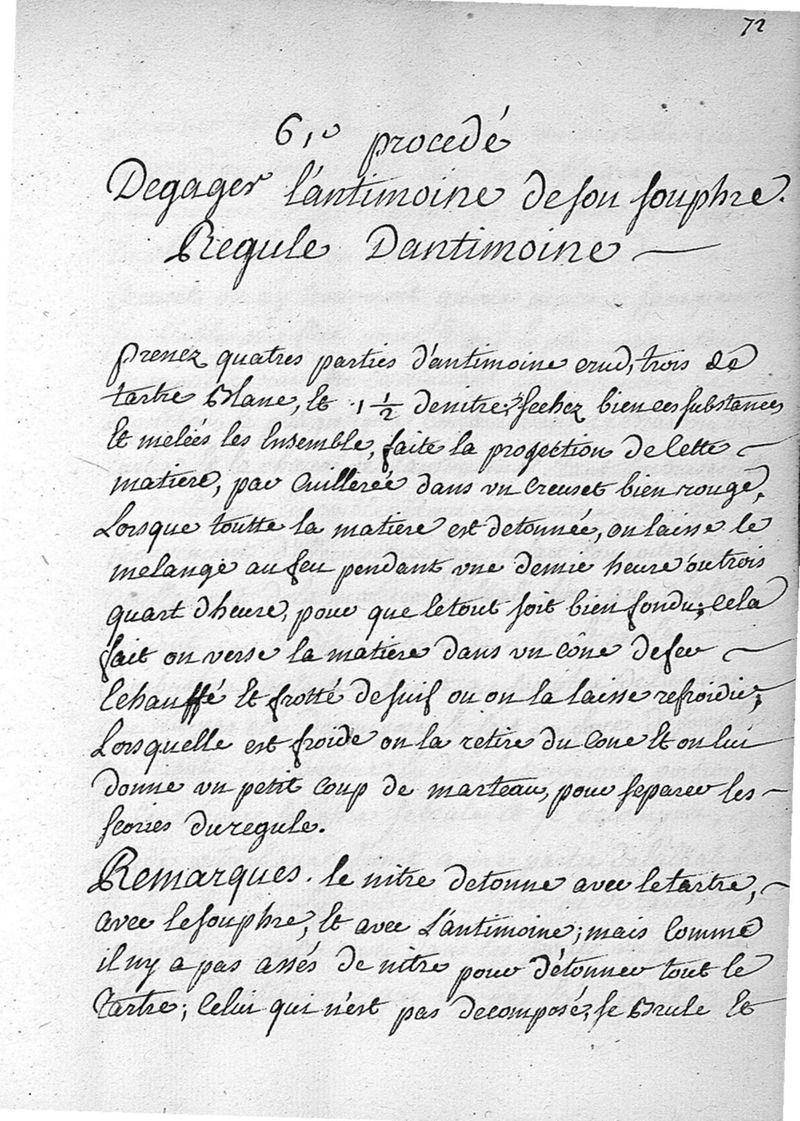 72
6,e procedé
Degager l'antimoine de son souphre.
Regule Dantimoine —
prenez quatres parties d'antimoine crud, trois de
tartre blanc, et 1 1/2 de nitre, sechez bien ces substances
Et meleés les Ensemble, faite la projection de cette
matiere, par Cuillereé dans un Creuset bien rouge,
Lorsque toutte la matiere est detonneé, on laisse le
melange au feu pendant une demie heure ou trois
quart d'heure, pour que le tout soit bien fondu; Cela
fait on verse la matiere dans un cône de fer
Echauffé Et frotté de suif ou on la laisse refroidir;
Lorsquelle est froide on la retire du Cone Et on lui
donne un petit Coup de marteau, pour separer les
scories du regule.
Remarques. le nitre detonne avec le tartre,
avec le souphre, Et avec L'antimoine; mais Comme
il ny a pas assés de nitre pour détonner tout le
Tartre; Celui qui n'est pas decomposé, se brule Et